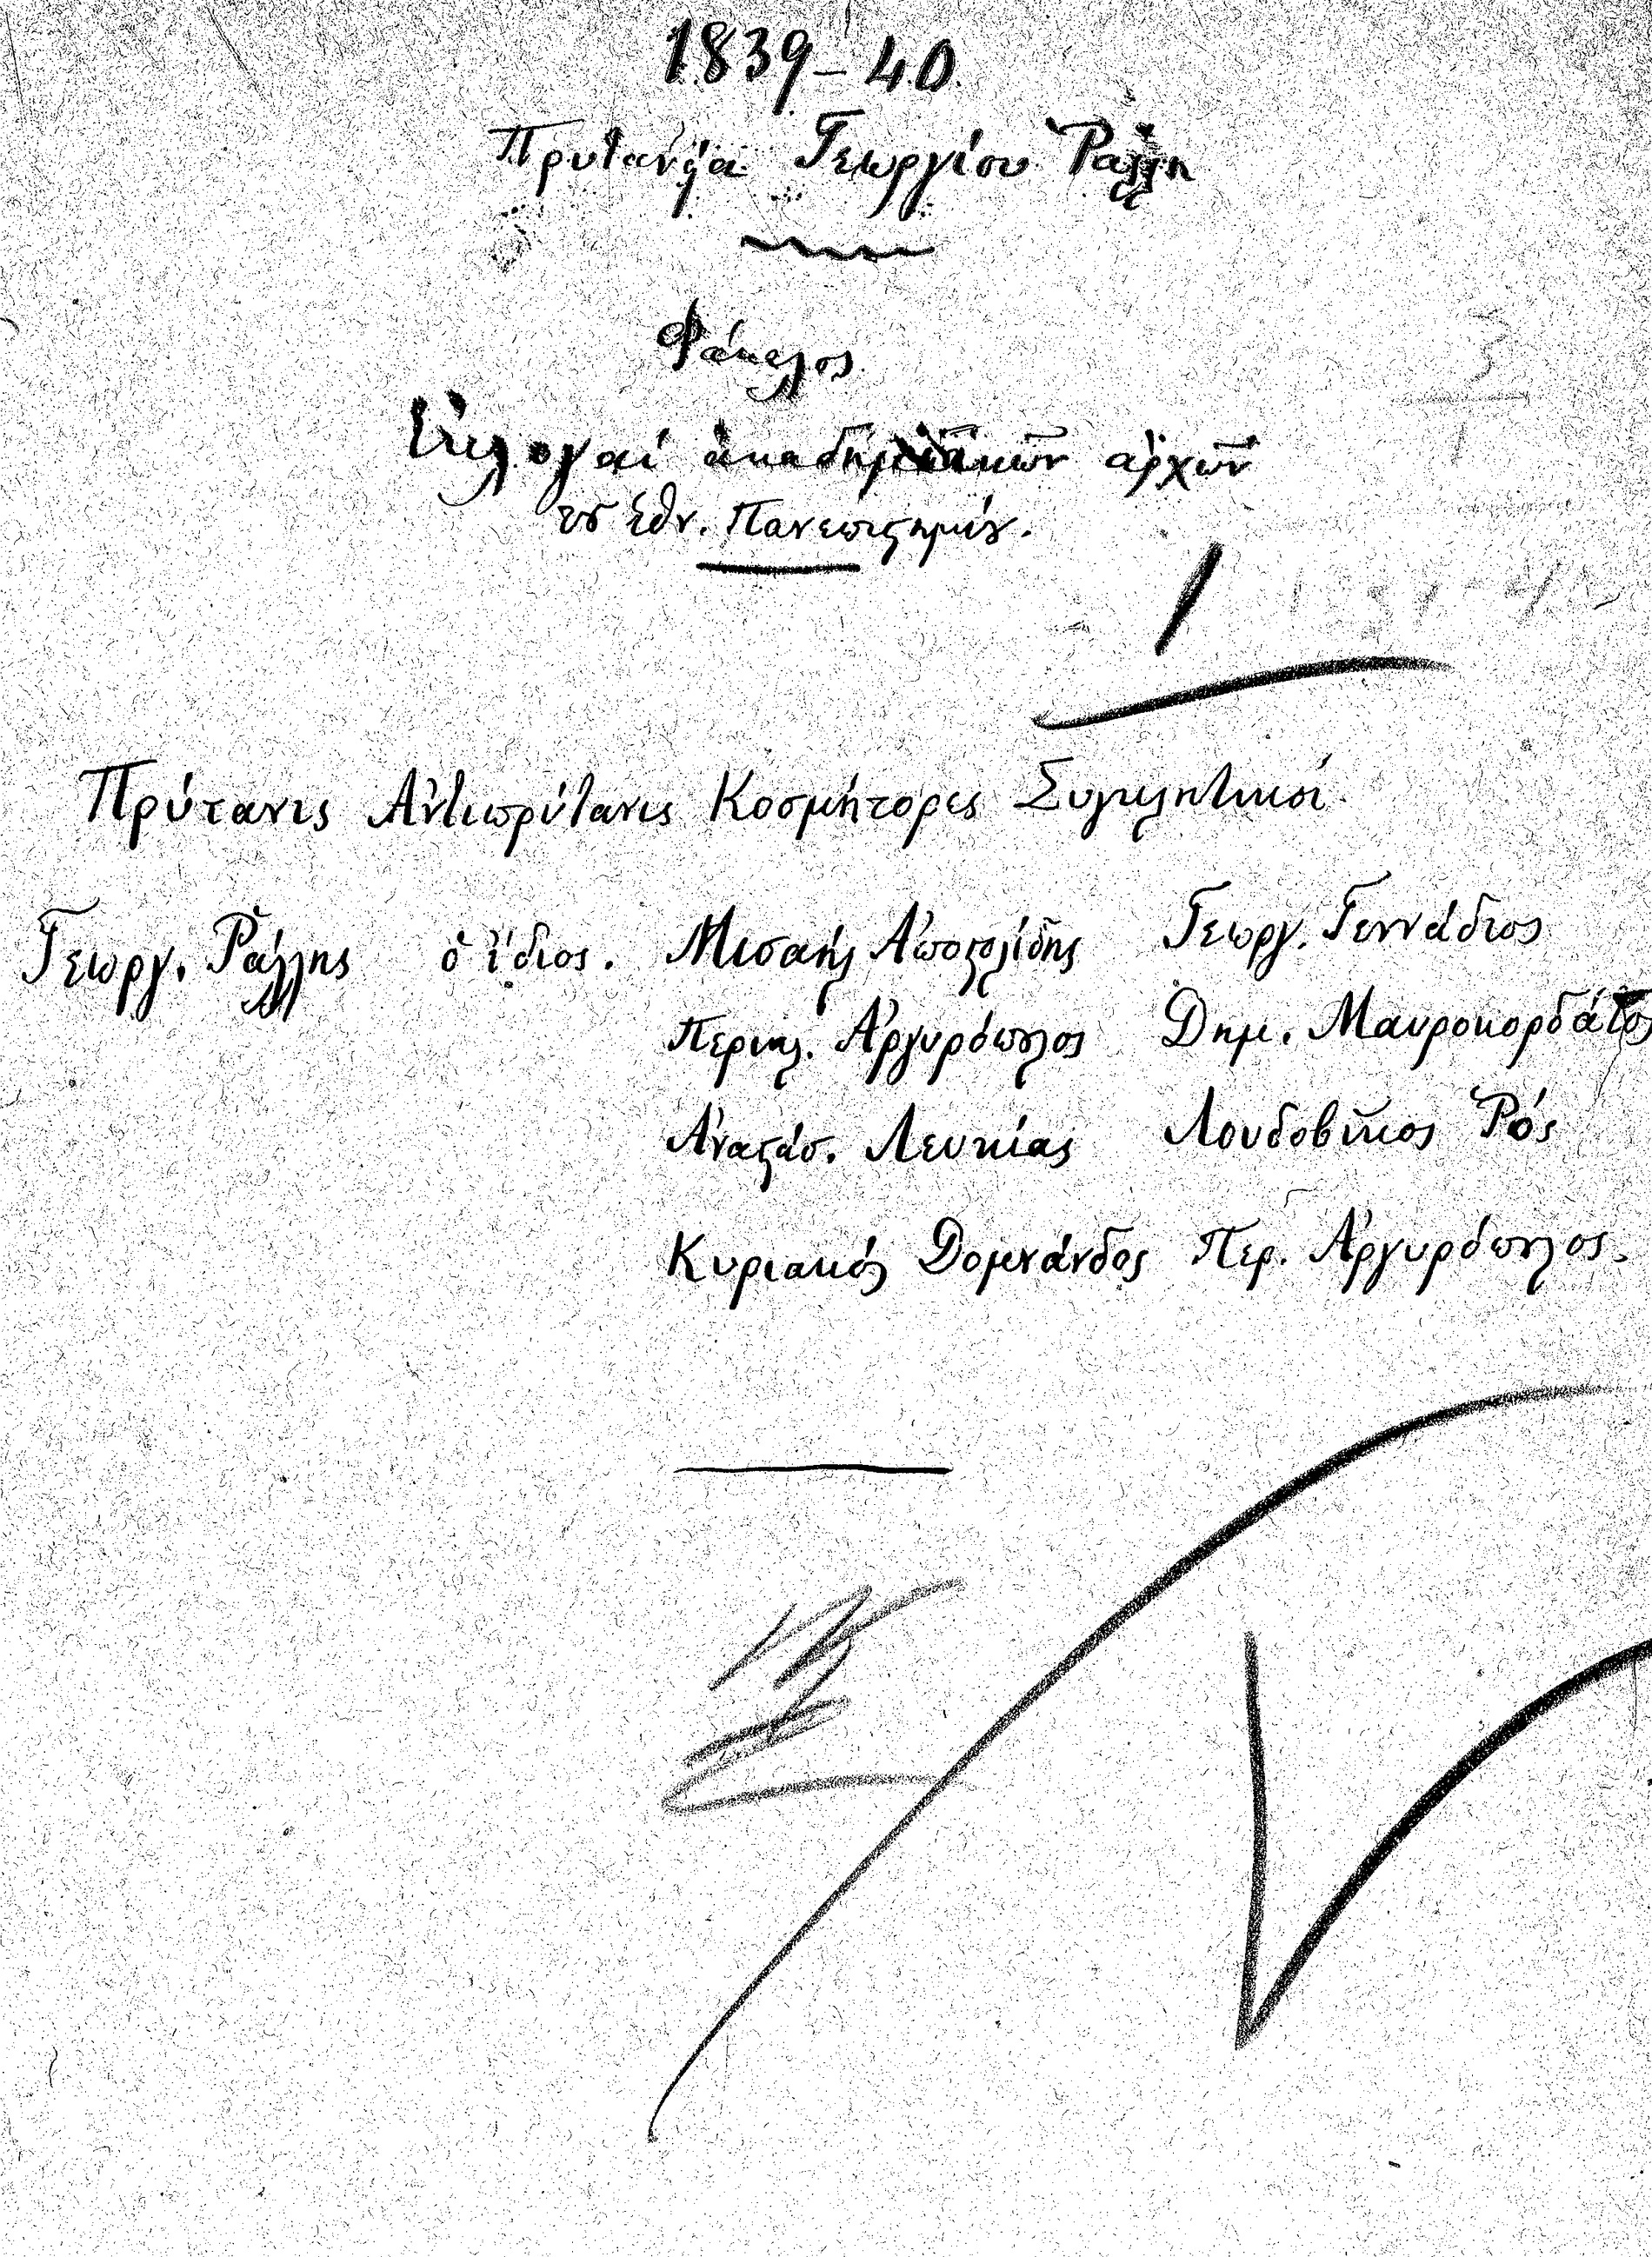 1839-40
Πρυτανεία Γεωργίου Ῥάλλη
Φάκελος
Ἐκλογαί ἀκαδημαϊκῶν ἀρχῶν
τȣ Ἐθν. Πανεπιϛημίȣ.
1
Πρύτανις Ἀντιπρύτανις Κοσμήτορες Συγκλητικοί
Γεωργ. Ῥάλλης ὁ ἴδιος. Μισαήλ Ἀποϛολίδης Γεωργ. Γεννάδιος
Περικλ. Ἀργυρόπȣλος Δημ. Μαυροκορδάτος
Ἀναϛάσ. Λευκίας Λουδοβῖκος Ῥός
Κυριακός Δομνάνδος Περ. Ἀργυρόπȣλος.